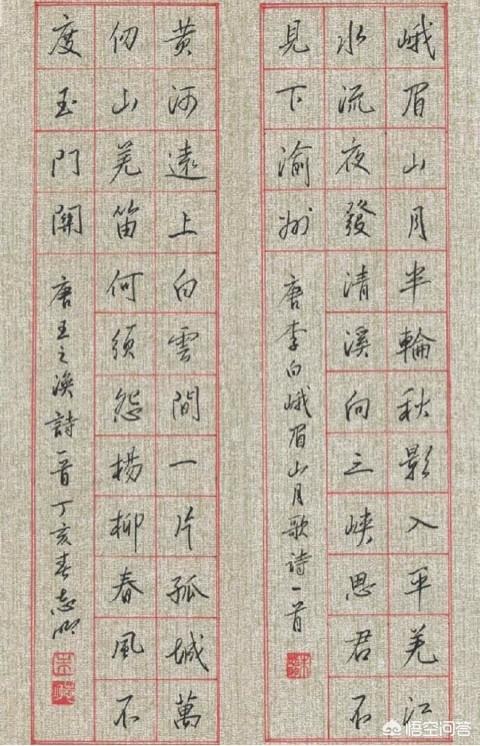 峨眉山月半輪秋影入平羌江
水流夜發清溪向三峽思君不
見下渝州
唐李白峨眉山月歌詩一首
黄河遠上白雲間一片孤城萬
仞山羌笛何須怨楊柳春風不
度玉門關
唐王之渙詩一首丁亥春志明
悟空问答